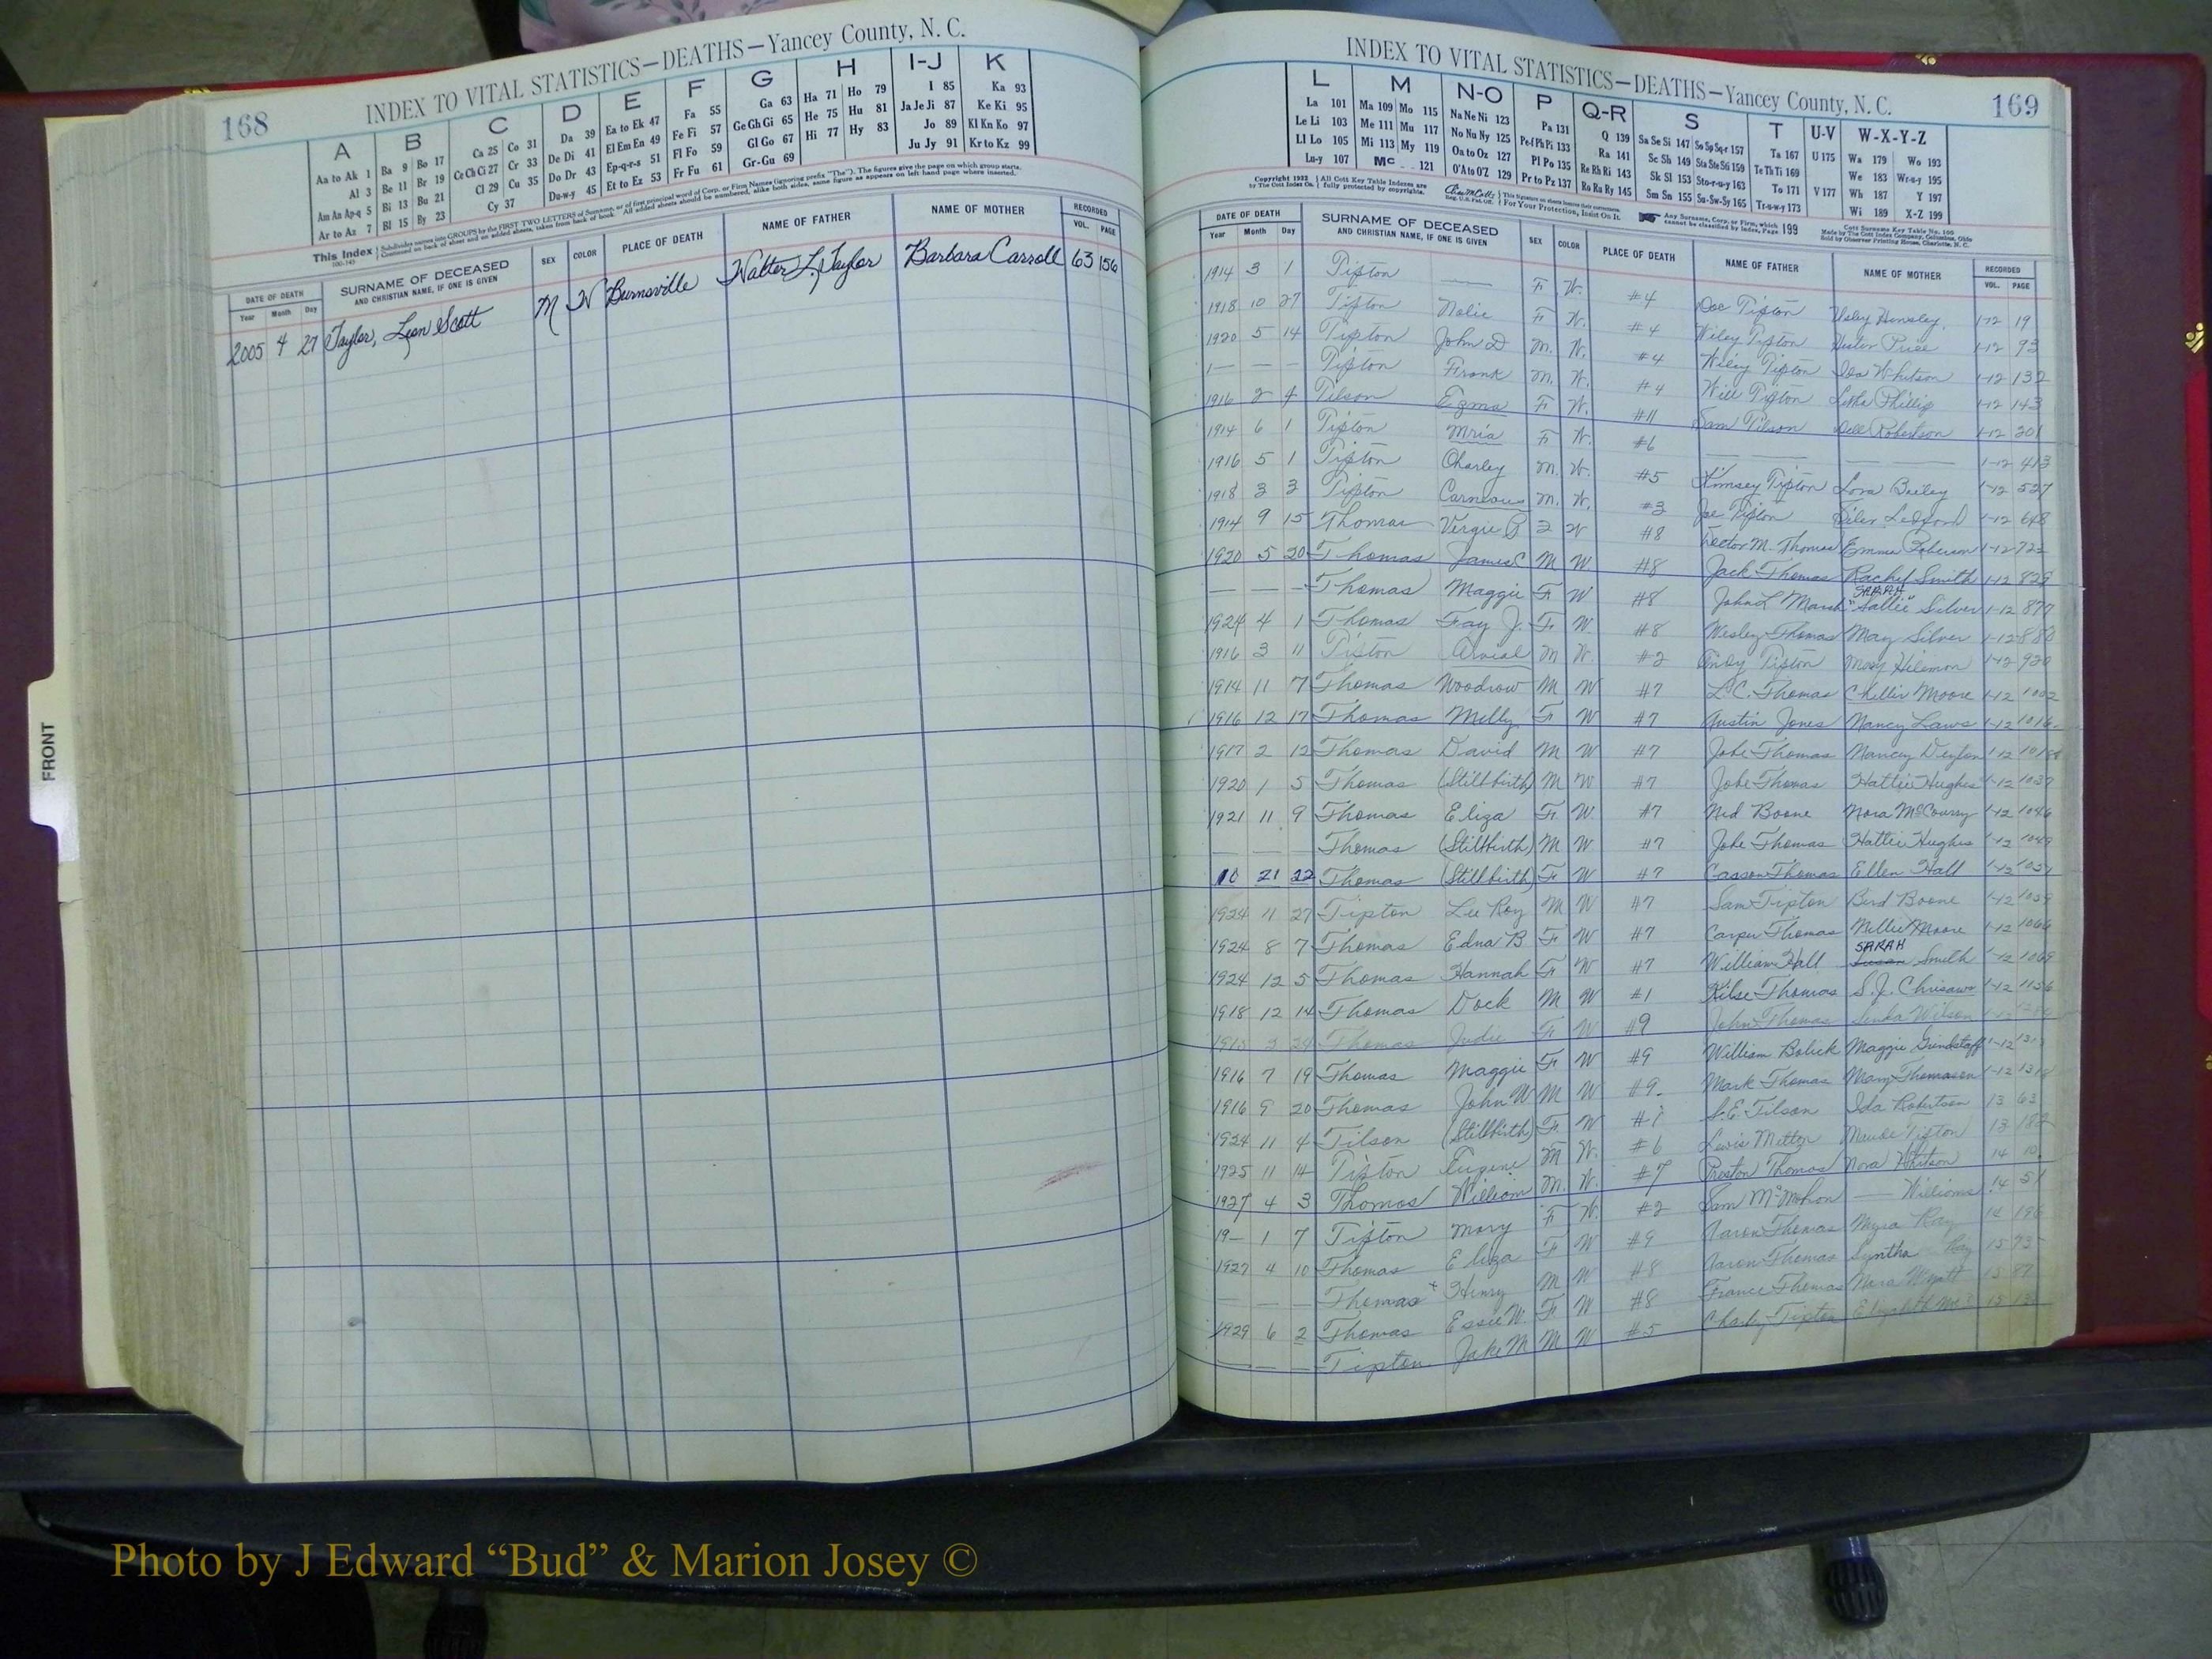 168
INDEX TO VITAL STATISTICS—DEATHS—Yancey County, N. C.
A B C D E F G H I-J K
Aa to Ak 1 Ba 9 Bo 17 Ca 25 Co 31 Da 39 Ea to Ek 47 Fa 55 Ga 63 Ha 71 Ho 79 I 85 Ka 93
Al 3 Be 11 Br 19 Ce Ch Ci 27 Cr 33 De Di 41 El Em En 49 Fe Fi 57 Ge Gh Gi 65 He 75 Hu 81 Ja Je Ji 87 Ke Ki 95
Am An Ap-q 5 Bi 13 Bu 21 Cl 29 Cu 35 Do Dr 43 Ep-q-r-s 51 Fl Fo 59 Gl Go 67 Hi 77 Hy 83 Jo 89 Kl Kn Ko 97
Ar to Az 7 Bl 15 By 23 Cy 37 Du-w-y 45 Et to Ez 53 Fr Fu 61 Gr-Gu 69 Ju Jy 91 Kr to Kz 99
This Index Subdivides names into GROUPS by the FIRST TWO LETTERS of Surname, or of first principal word of Corp. or Firm Names (ignoring prefix "The"). The figures give the page on which group starts.
Continued on back of sheet and on added sheets, taken from back of book. All added sheets should be numbered, alike both sides, same figure as appears on left hand page where inserted.
DATE OF DEATH SURNAME OF DECEASED SEX COLOR PLACE OF DEATH NAME OF FATHER NAME OF MOTHER RECORDED
Year Month Day AND CHRISTIAN NAME, IF ONE IS GIVEN VOL. PAGE
2005 4 27 Taylor, Leon Scott M W Burnsville Walter L. Taylor Barbara Carroll 63 156
FRONT
INDEX TO VITAL STATISTICS—DEATHS—Yancey County, N. C.
169
L M N-O P Q-R S T U-V W-X-Y-Z
La 101 Ma 109 Mo 115 Na Ne Ni 123 Pa 131 Q 139 Sa Se Si 147 So Sp Sq-r 157 Ta 167 U 175 Wa 179 Wo 193
Le Li 103 Me 111 Mu 117 No Nu Ny 125 Pe-f Ph Pi 133 Ra 141 Sc Sh 149 Sta Ste Sti 159 Te Th Ti 169 We 183 Wr-u-y 195
Ll Lo 105 Mi 113 My 119 Oa to Oz 127 Pl Po 135 Re Rh Ri 143 Sk Sl 153 Sto-r-u-y 163 To 171 V 177 Wh 187 Y 197
Lu-y 107 Mc 121 O'A to O'Z 129 Pr to Pz 137 Ro Ru Ry 145 Sm Sn 155 Su-Sw-Sy 165 Tr-u-w-y 173 Wi 189 X-Z 199
Copyright 1932 All Cott Key Table Indexes are
by The Cott Index Co. fully protected by copyrights. For Your Protection, Insist On It.
Any Surname, Corp. or Firm, which cannot be classified by index, Page 199
DATE OF DEATH SURNAME OF DECEASED SEX COLOR PLACE OF DEATH NAME OF FATHER NAME OF MOTHER RECORDED
Year Month Day AND CHRISTIAN NAME, IF ONE IS GIVEN VOL. PAGE
1914 3 1 Tipton — F W. #4 Doc Tipton Hensley 1-12 19
1918 10 27 Tipton Nolie F W. #4 Wiley Tipton Hester Price 1-12 93
1920 5 14 Tipton John D M. W. #4 Wiley Tipton Ida Whitson 1-12 132
— — — Tipton Frank M. W. #4 Will Tipton Letha Phillips 1-12 143
1916 2 4 Tilson Ezma F W. #11 Sam Tilson Dell Robertson 1-12 201
1914 6 1 Tipton Mria F W. #6 — — 1-12 413
1916 5 1 Tipton Charley M. W. #5 Kimsey Tipton Lora Bailey 1-12 527
1918 3 3 Tipton M. W. #3 Joe Tipton Ledford 1-12 648
1914 9 15 Thomas Vergie #8 M. Thomas Emma 1-12 722
1920 5 20 Thomas James C M W #8 Jack Thomas Rachel Smith 1-12 825
— — — Thomas Maggie F W #8 John L Marsh SARAH "Sallie" Silver 1-12 877
1924 4 1 Thomas Fay J. F W #8 Wesley Thomas May Silver 1-12 880
1916 3 11 Tipton Arvial M W. #2 Andy Tipton Mary Hilemon 1-12 920
1914 11 7 Thomas Woodrow M W #7 L.C. Thomas Moore 1-12 1002
1916 12 17 Thomas Milly F W #7 Austin Jones Nancy Laws 1-12 1016
1917 2 12 Thomas David M W #7 Jobe Thomas Nancy Deyton 1-12
1920 1 5 Thomas (Stillbirth) M W #7 Jobe Thomas Hattie Hughes 1-12 1037
1921 11 9 Thomas Eliza F W #7 Ned Boone Nora McCourry 1-12 1046
— — — Thomas (Stillbirth) M W #7 Jobe Thomas Hattie Hughes 1-12 1049
10 21 22 Thomas (Stillbirth) F W #7 Casson Thomas Ellen Hall 1-12
1924 11 27 Tipton Lee Roy M W #7 Sam Tipton Bird Boone 1-12 1059
1924 8 7 Thomas Edna B F W #7 Thomas Millie Moore 1-12 1066
1924 12 5 Thomas Hannah F W #7 William Hall SARAH Smith 1-12 1069
1918 12 14 Thomas Dock M W #1 Thomas S.J. 1-12 1156
Thomas Judie F W #9 John Thomas Wilson 1-12
1916 7 19 Thomas Maggie F W #9 William Bolick Maggie Grindstaff 1-12
1916 9 20 Thomas John W M W #9 Mark Thomas Mary Thomason 1-12
1924 11 4 Tilson (Stillbirth) F W #1 S.E. Tilson Ida Robertson 13 63
1925 11 14 Tipton Eugene M W. #6 Maude Tipton 13
1927 4 3 Thomas William M. W. #7 Preston Thomas Nora Whitson 14
19— 1 7 Tipton Mary F W. #2 Sam McMahon — Williams 14 51
1927 4 10 Thomas Eliza F W #9 Aaron Thomas Myra Ray 14
— — — Thomas Henry M W #8 Aaron Thomas Syntha Ray 15
1929 6 2 Thomas Essie W. F W #8 Thomas Nora Wyatt 15
— — — Tipton Jake M M W #5 Charley Tipton Elizabeth 15
Photo by J Edward “Bud” & Marion Josey ©